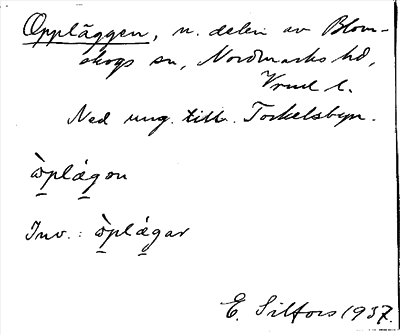 Oppläggen, n. delen av Blom-
skogs sn, Nordmarks hd,
Vrml l.
Ned ung. till Torkelsbyn.
òplǽgon
Inv.: òplǽgar
E. Silfors 1937.